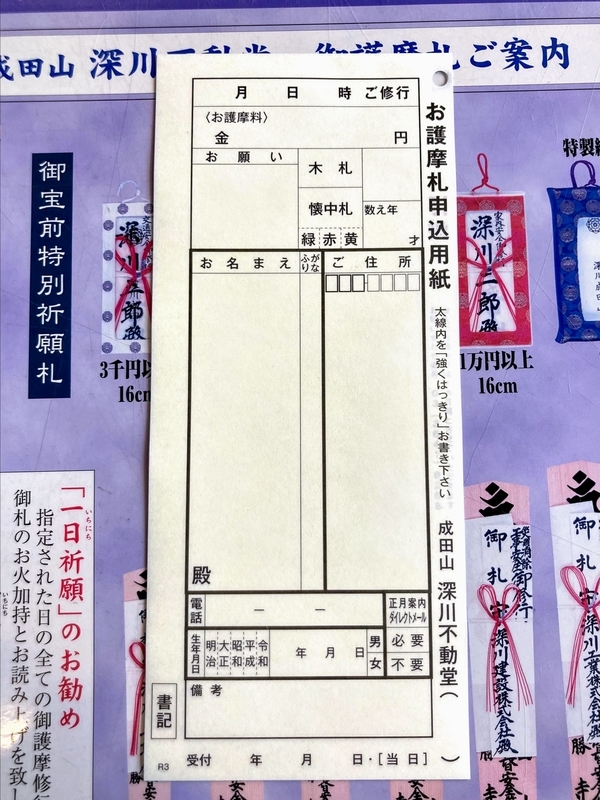 成田山 深川不動堂 御護摩札ご案内
お護摩札申込用紙
太線内を「強くはっきり」お書き下さい
成田山 深川不動堂 ( )
月 日 時 ご修行
〈お護摩料〉
金 円
お願い
木札
懐中札
緑 赤 黄
数え年
才
お名まえ
ふりがな
ご住所
殿
電話 ― ―
正月案内
ダイレクトメール
必要
不要
生年月日
明治 大正 昭和 平成 令和
年 月 日
男
女
備考
書記
R3
受付 年 月 日・[当日]
御宝前特別祈願札
3千円以
16cm
1万円以上
16cm
特製
深川二郎殿
「一日祈願」のお勧め
いちにち
指定された日の全ての御護摩修行
御札のお火加持とお読み上げを致し
いちにち
御札
深川建設株式会社殿
御札